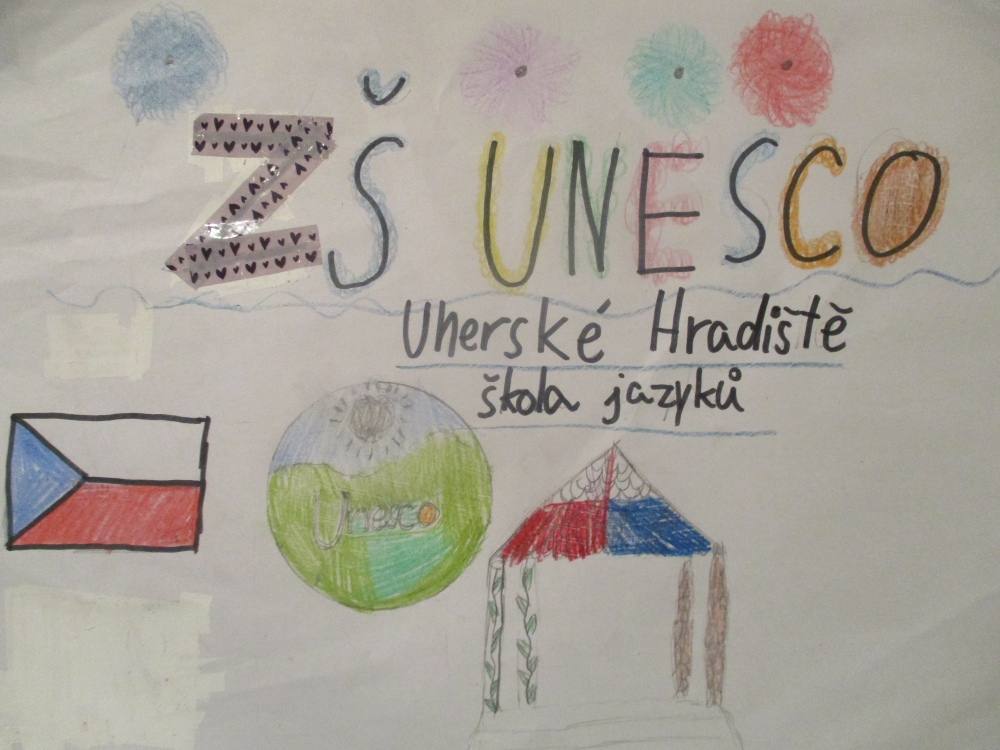 ZŠ UNESCO
Uherské Hradiště
škola jazyků
Unesco